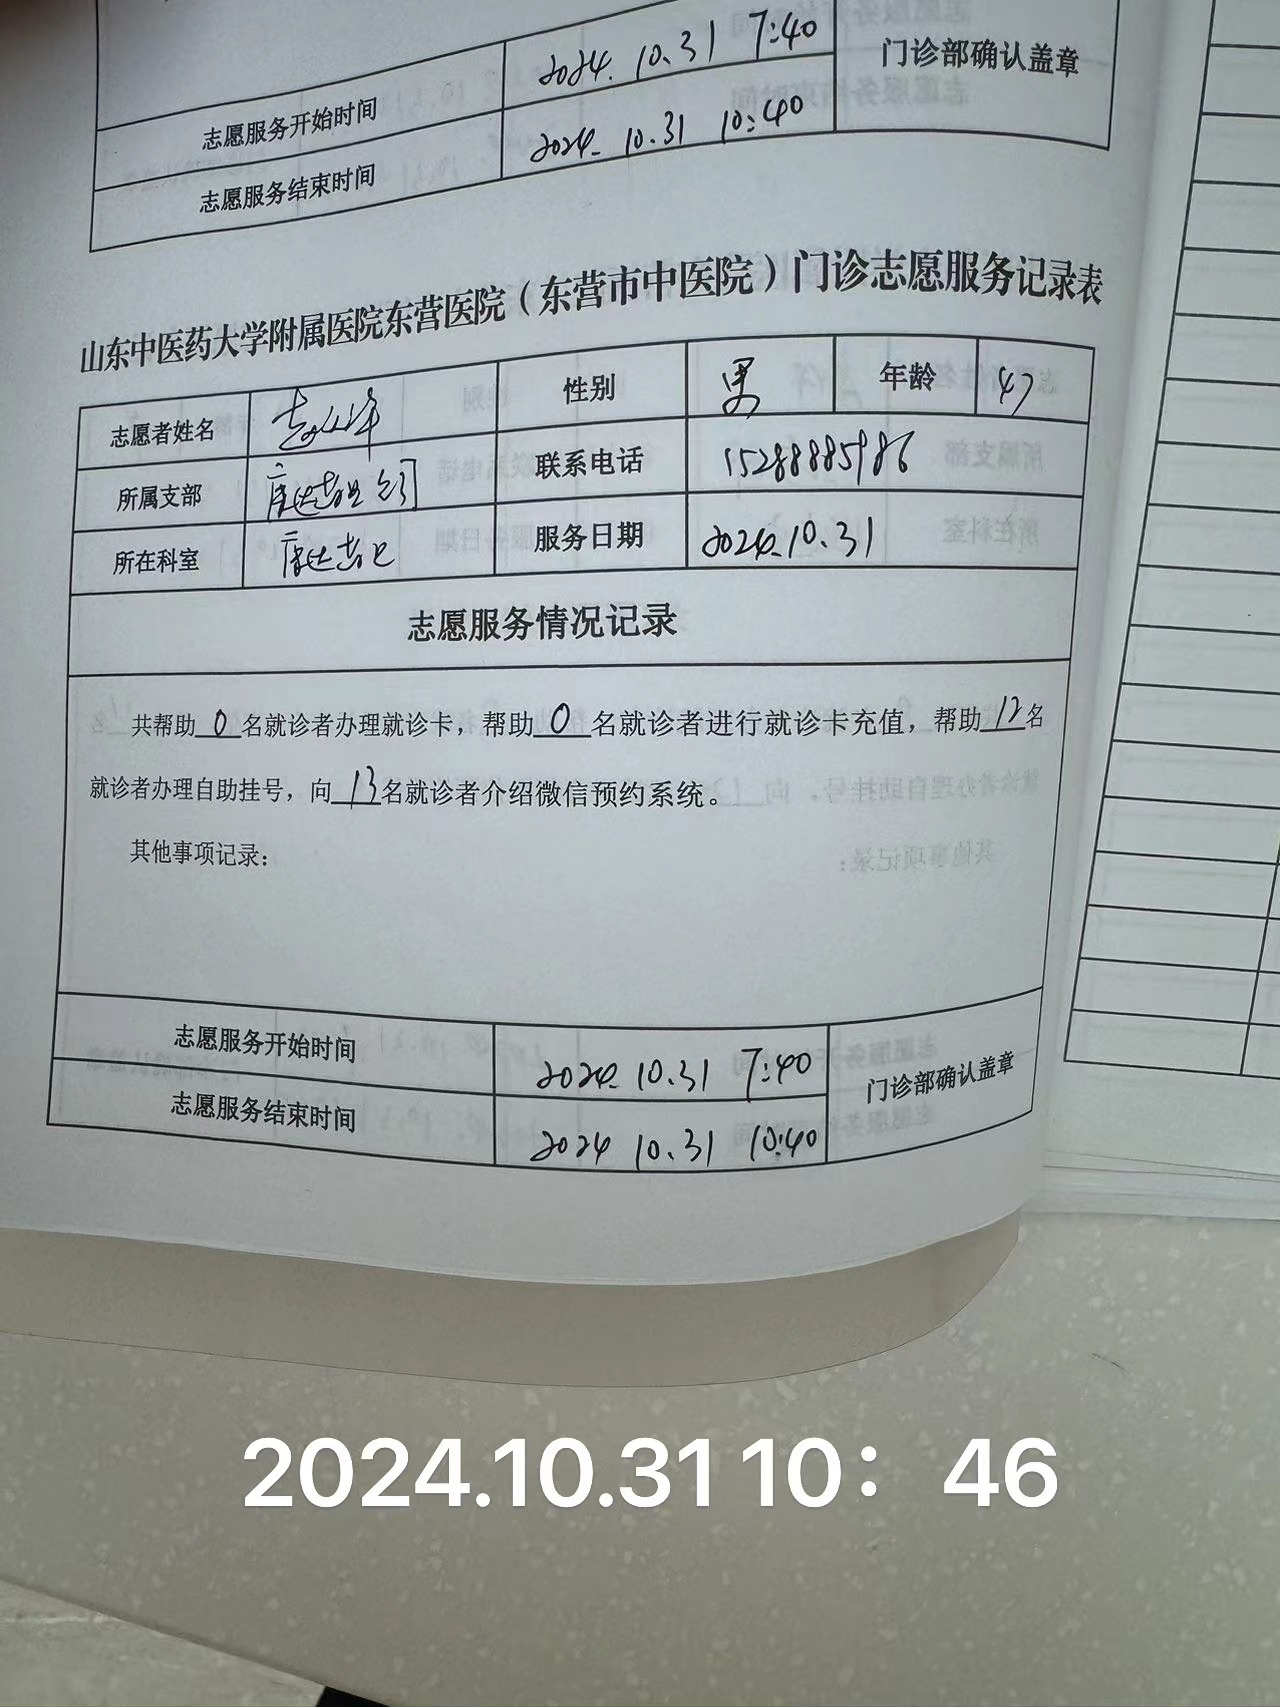 志愿服务开始时间 2024. 10.31 7:40 门诊部确认盖章
志愿服务结束时间 2024. 10.31 10:40
山东中医药大学附属医院东营医院（东营市中医院）门诊志愿服务记录表
志愿者姓名 性别 男 年龄 47
所属支部 联系电话 15288885986
所在科室 服务日期 2024.10.31
志愿服务情况记录
共帮助 0 名就诊者办理就诊卡，帮助 0 名就诊者进行就诊卡充值，帮助 12 名
就诊者办理自助挂号，向 13 名就诊者介绍微信预约系统。
其他事项记录：
志愿服务开始时间 2024. 10.31 7:40 门诊部确认盖章
志愿服务结束时间 2024 10.31 10:40
2024.10.31 10：46